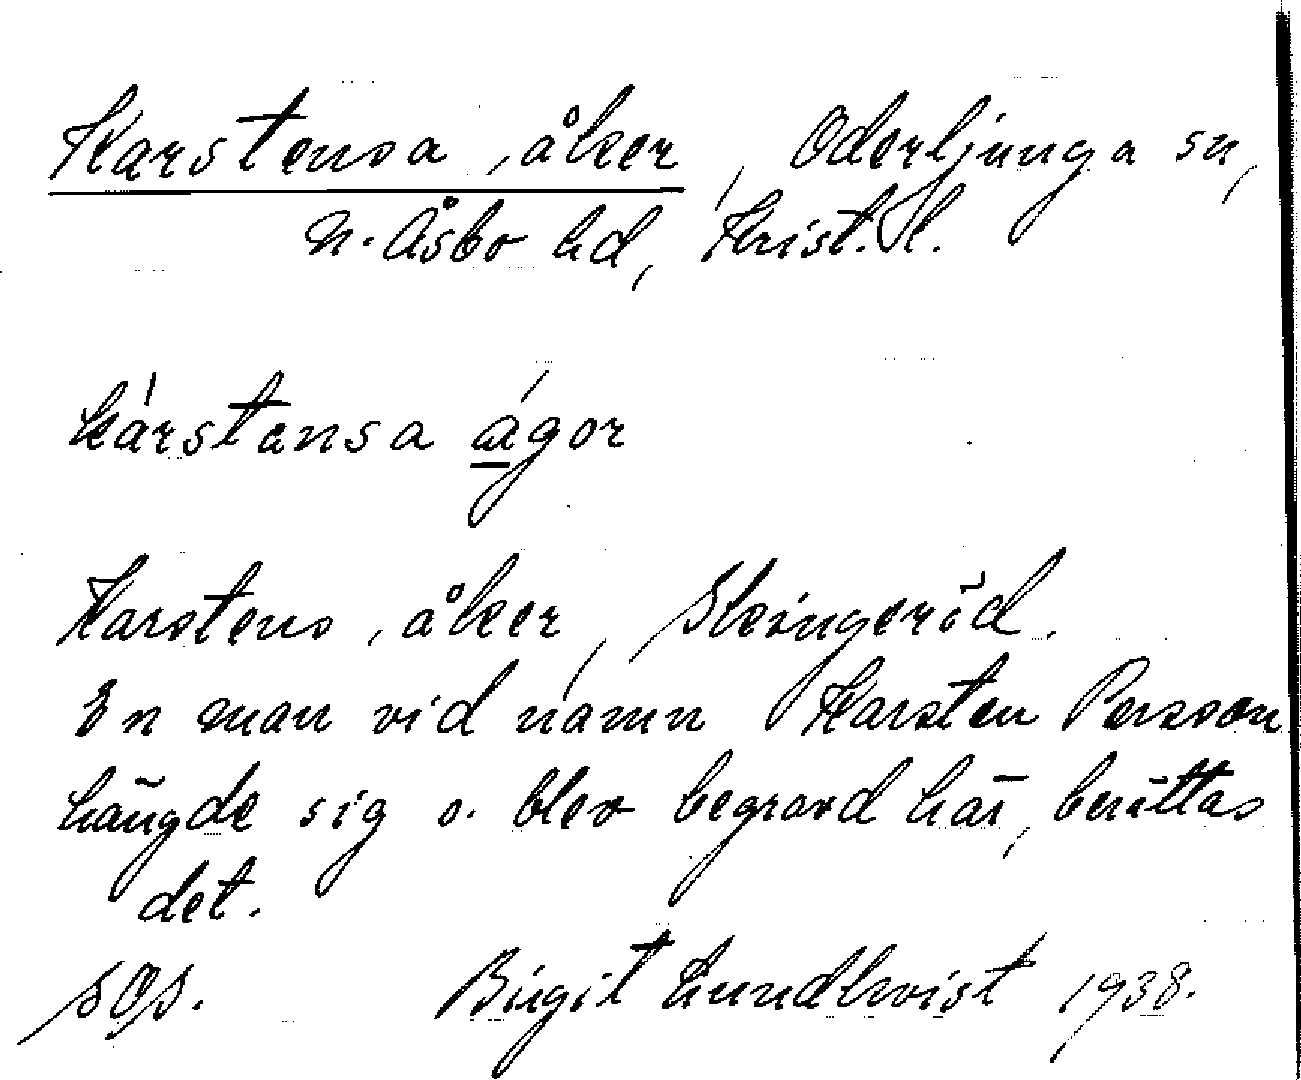 Karstensa åker, Oderljunga sn,
N. Åsbo hd, Krist. l.
kárstansa ágor
Karstens åker, Skingeröd.
En man vid namn Karsten Persson
hängde sig o. blev begravd här, berättas
det.
SOS. Birgit Lundkvist 1938.